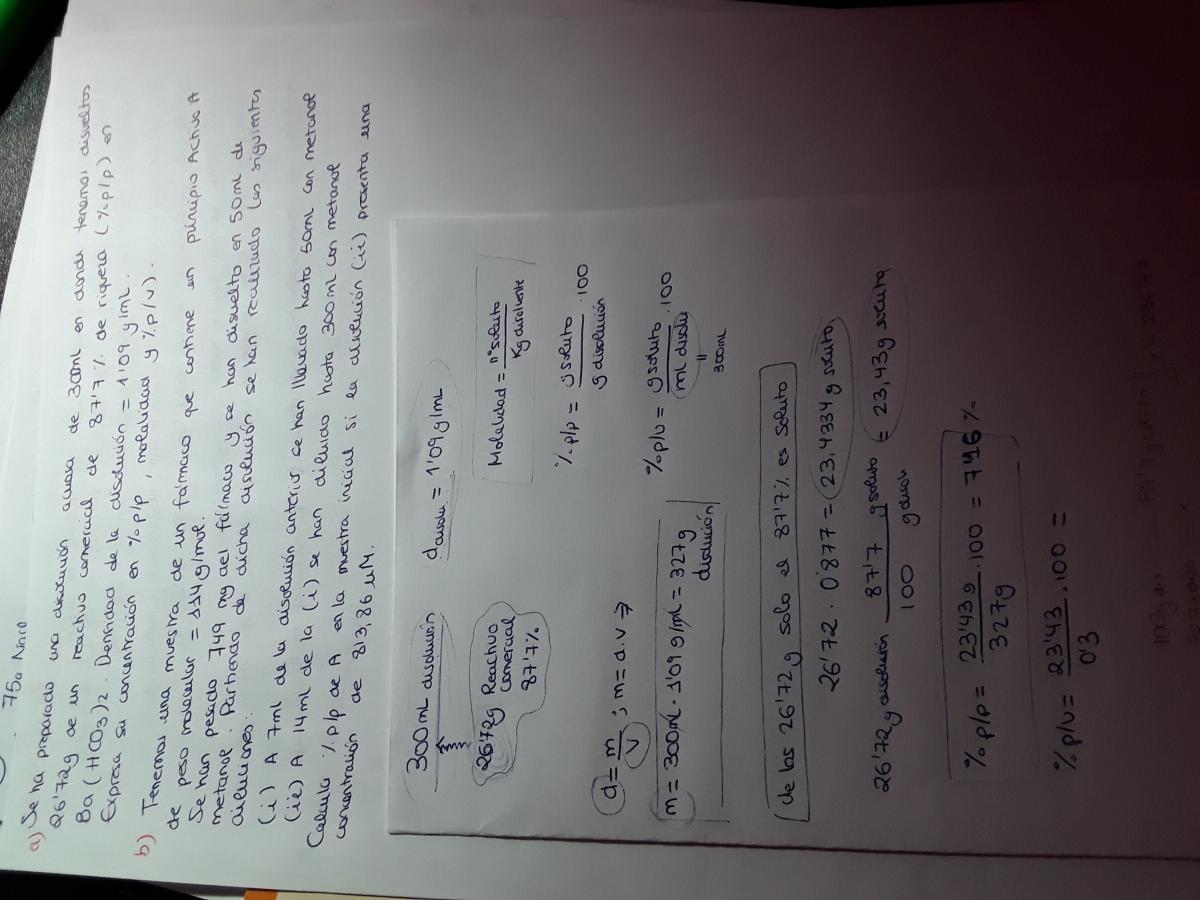 75a Nano
a) Se ha preparado una disolución acuosa de 300ml en donde tenemos disueltos
26'72g de un reactivo comercial de 87'7% de riqueza (% p/p) en
Ba (HCO3)2. Densidad de la disolución = 1'09 g/mL.
Expresa su concentración en % p/p, molalidad y % p/v).
b) Tenemos una muestra de un fármaco que contiene un principio Activo A
de peso molecular = 114 g/mol.
Se han pesado 749 mg del fármaco y se han disuelto en 50ml de
metanol. Partiendo de dicha disolución se han realizado las siguientes
diluciones:
(i) A 7ml de la disolución anterior se han llevado hasta 50ml con metanol
(ii) A 14ml de la (i) se han diluido hasta 300ml con metanol
Calcula % p/p de A en la muestra inicial si la disolución (ii) presenta una
concentración de 813,86 µM.
300mL disolución
ddisolu = 1'09 g/mL
26'72g Reactivo
Comercial
87'7%
Molalidad = nº soluto / Kg disolvente
d = m / V ; m = d.v ⇒
% p/p = g soluto / g disolución . 100
m = 300mL . 1'09 g/mL = 327g
disolución
% p/v = g soluto / mL disolu . 100
=
300mL
de los 26'72g solo el 87'7% es soluto
26'72 . 0'877 = 23,4334 g soluto
26'72g disolución 87'7 g soluto / 100 g disol = 23,43g soluto
% p/p = 23'43g / 327g . 100 = 7'16 %
% p/v = 23'43 / 0'3 . 100 =